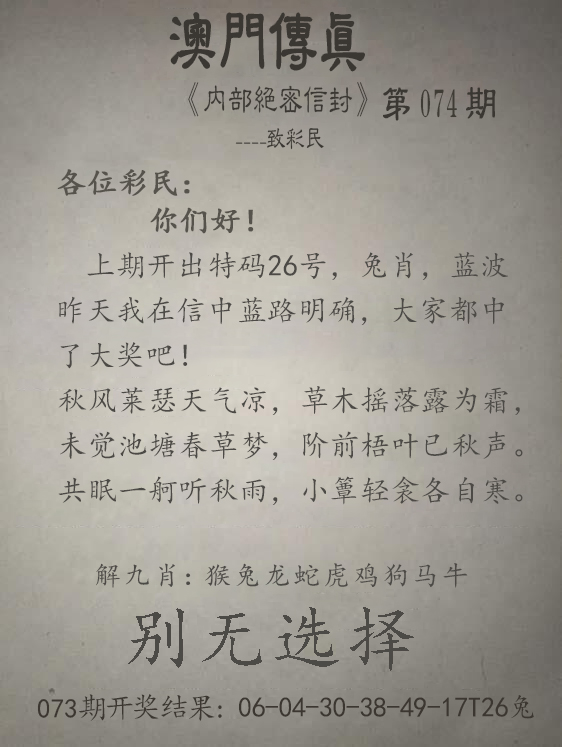 澳門傳真
《内部絕密信封》第074期
----致彩民
各位彩民：
你们好！
上期开出特码26号，兔肖，蓝波
昨天我在信中蓝路明确，大家都中
了大奖吧！
秋风莱瑟天气凉，草木摇落露为霜，
未觉池塘春草梦，阶前梧叶已秋声。
共眠一舸听秋雨，小簟轻衾各自寒。
解九肖：猴兔龙蛇虎鸡狗马牛
别无选择
073期开奖结果：06-04-30-38-49-17T26兔